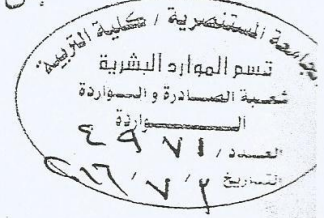 الجامعة المستنصرية / كلية التربية
قسم الموارد البشرية
شعبة الصادرة والواردة
الـــواردة
العـدد / ٤٩٧١
التـاريخ / ٢ / ٧ / ٢٠١٦